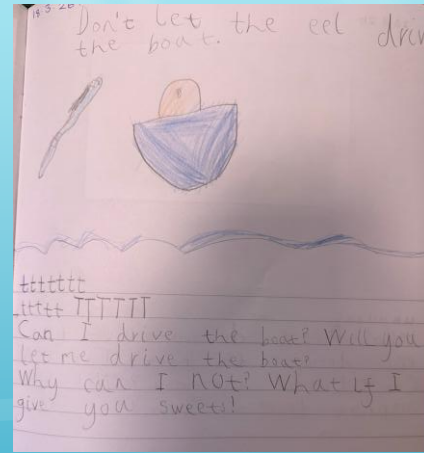 14 3 26
Don't Let the eel driv
the boat.
tttttt
ttttt TTTTTT
Can I drive the boat? Will you
let me drive the boat?
Why can I not? What if I
give you sweets!